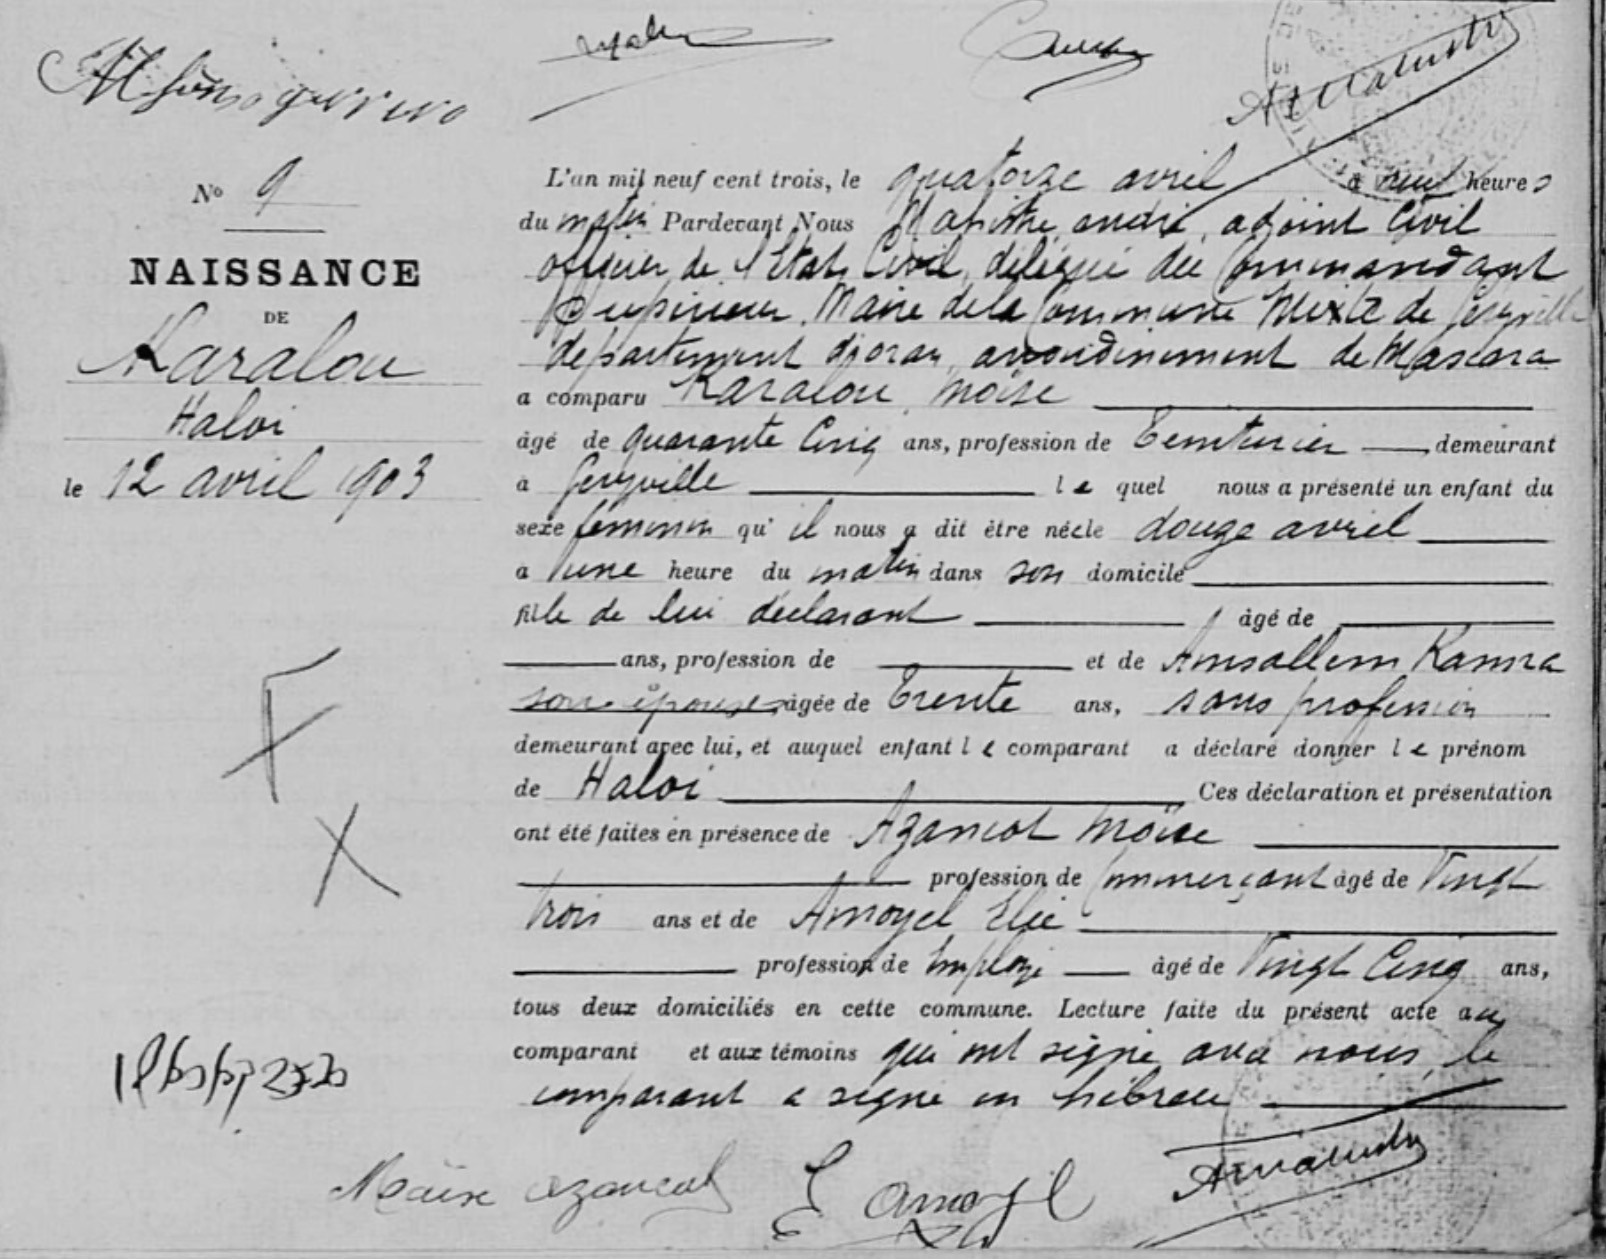 N° 9
NAISSANCE
DE
Karalou
Haloi
le 12 avril 1903
L'an mil neuf cent trois, le quatorze avril à neuf heures
du matin Pardevant Nous andré, adjoint Civil
officier de l'Etat Civil, délégué du Commandant
Supérieur, Maire de la Commune Mixte de Géryville
département d'oran, arrondissement de Mascara
a comparu Karalou, Moïse
âgé de quarante Cinq ans, profession de demeurant
à Géryville le quel nous a présenté un enfant du
sexe féminin qu'il nous a dit être née le douze avril
à une heure du matin dans son domicile
fille de lui déclarant âgé de
ans, profession de et de Amsallem Kamra
son épouse âgée de Trente ans, sans profession
demeurant avec lui, et auquel enfant le comparant a déclaré donner le prénom
de Haloi Ces déclaration et présentation
ont été faites en présence de Azancot Moïse
profession de Commerçant âgé de Vingt
trois ans et de Amoyel Elie
profession de Employé âgé de Vingt Cinq ans,
tous deux domiciliés en cette commune. Lecture faite du présent acte au
comparant et aux témoins qui ont signé avec nous, le
comparant a signé en hébreu
F
X
Moïse azancot E amoyel